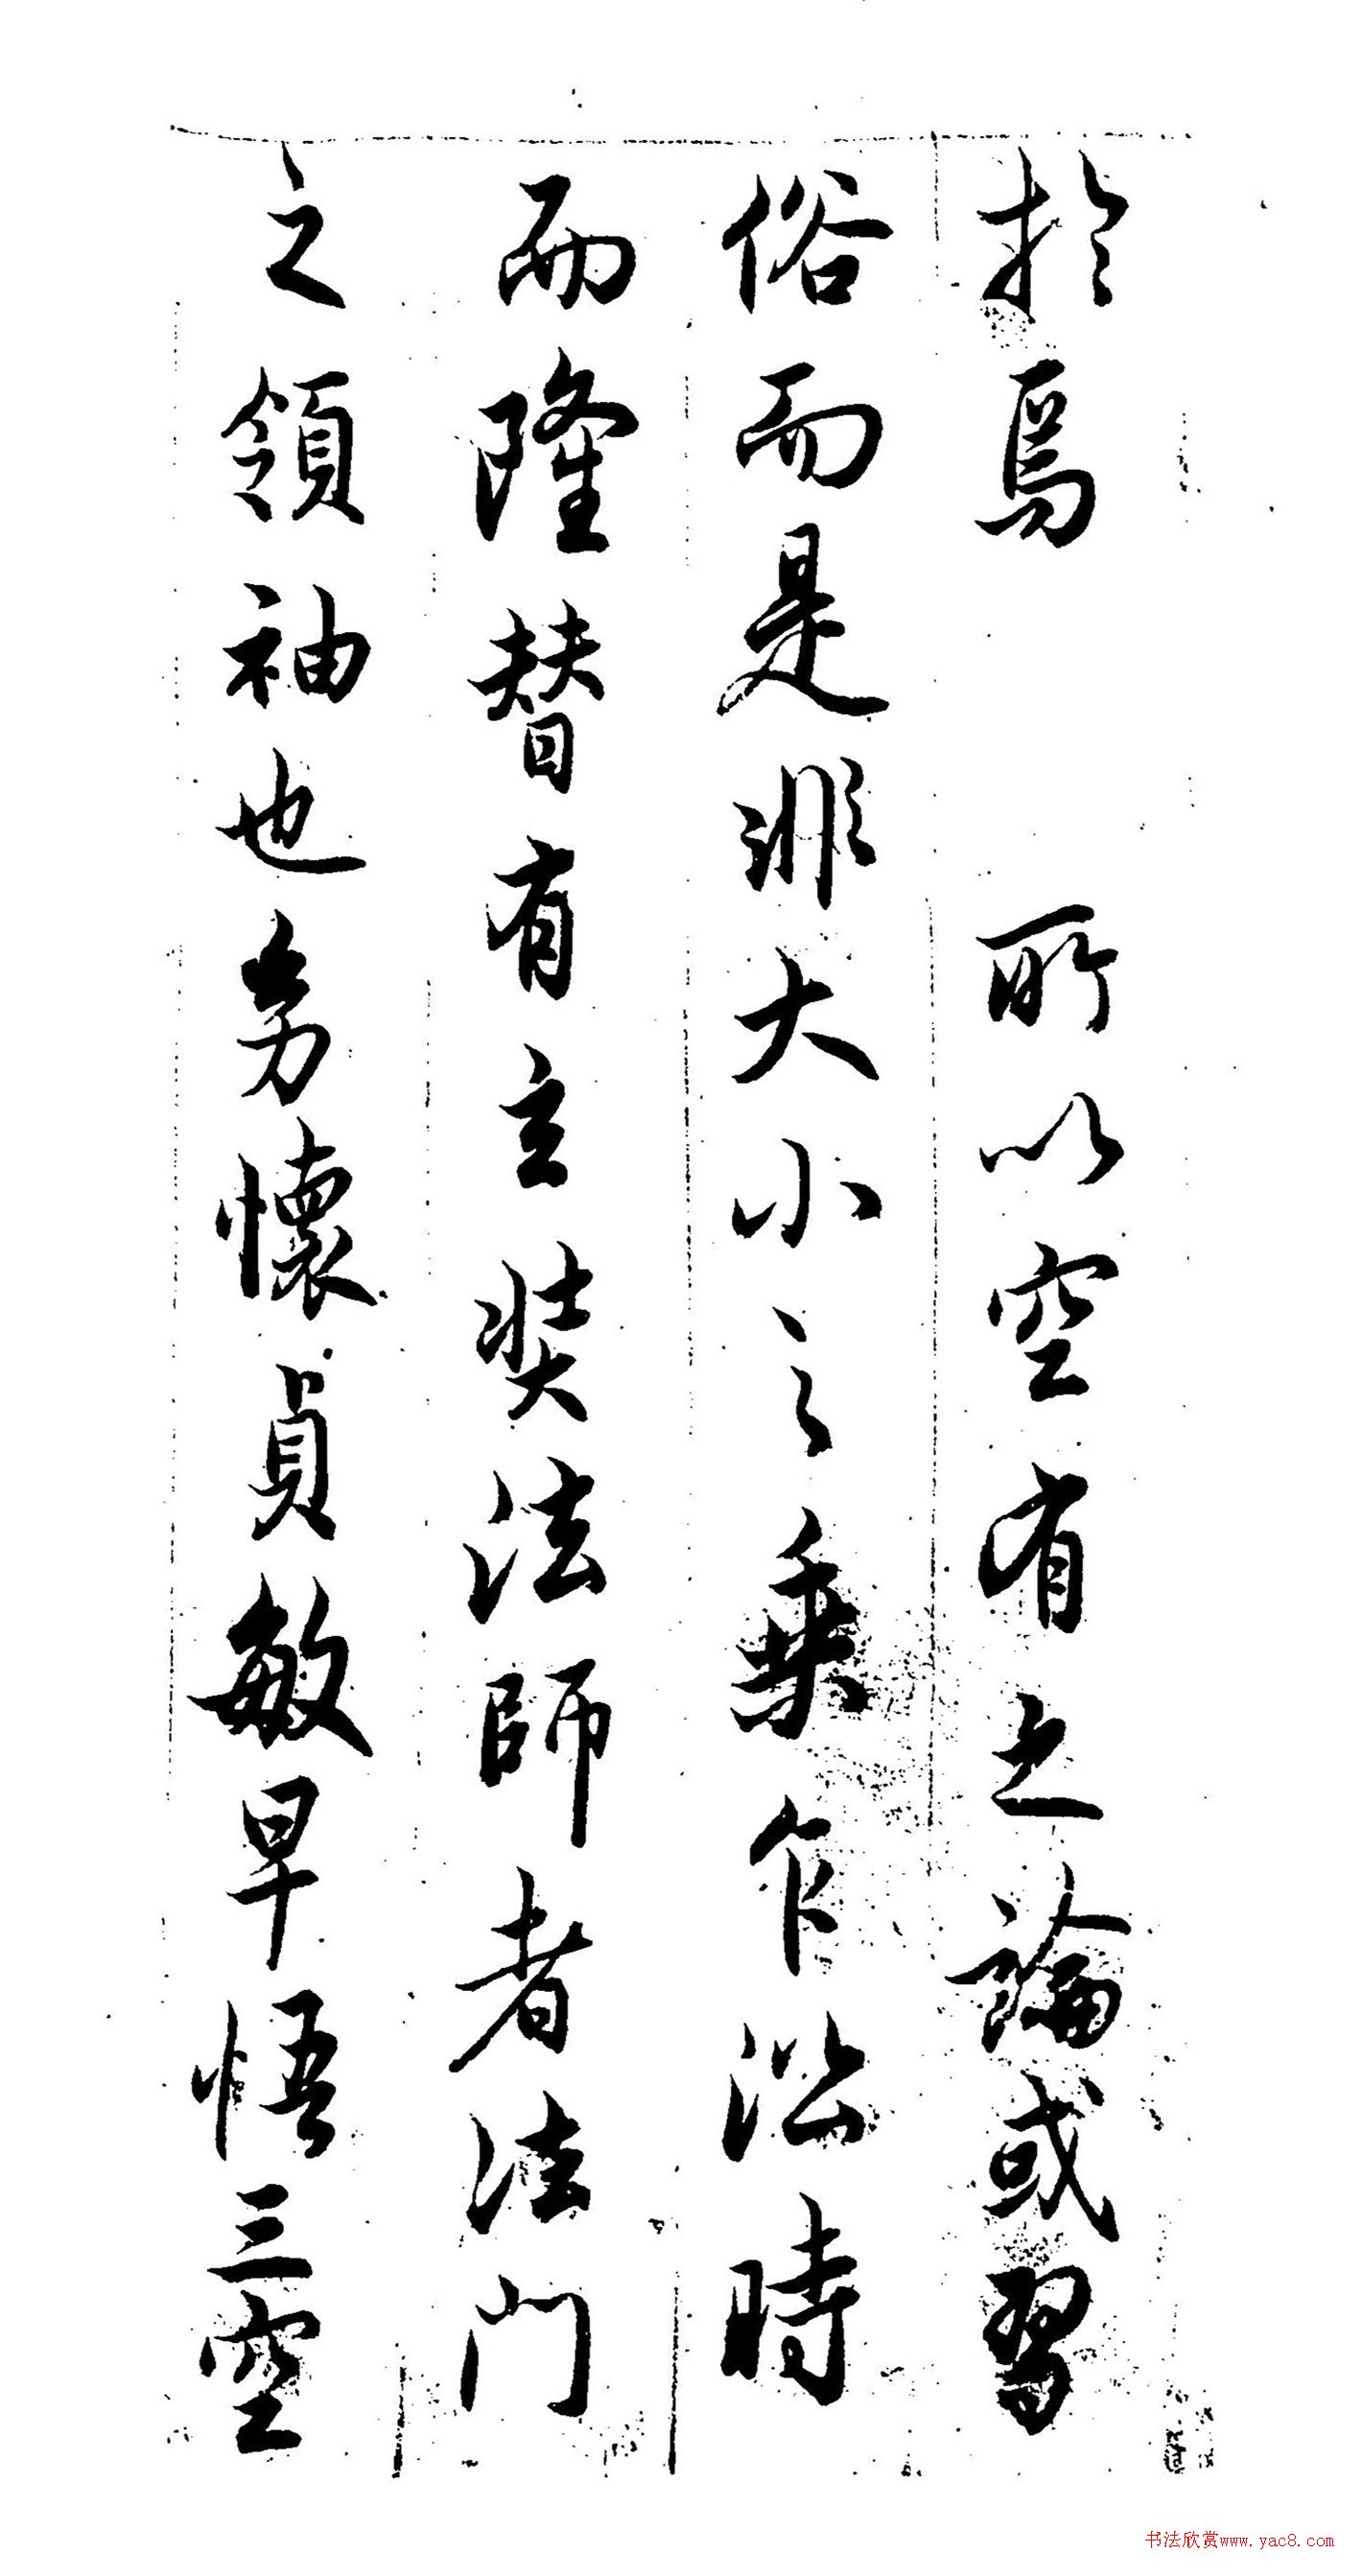 於焉 所以空有之論或習
俗而是非大小之乘乍沿時
而隆替有玄奘法師者法門
之領袖也幼懷貞敏早悟三空
书法欣赏www.yac8.com